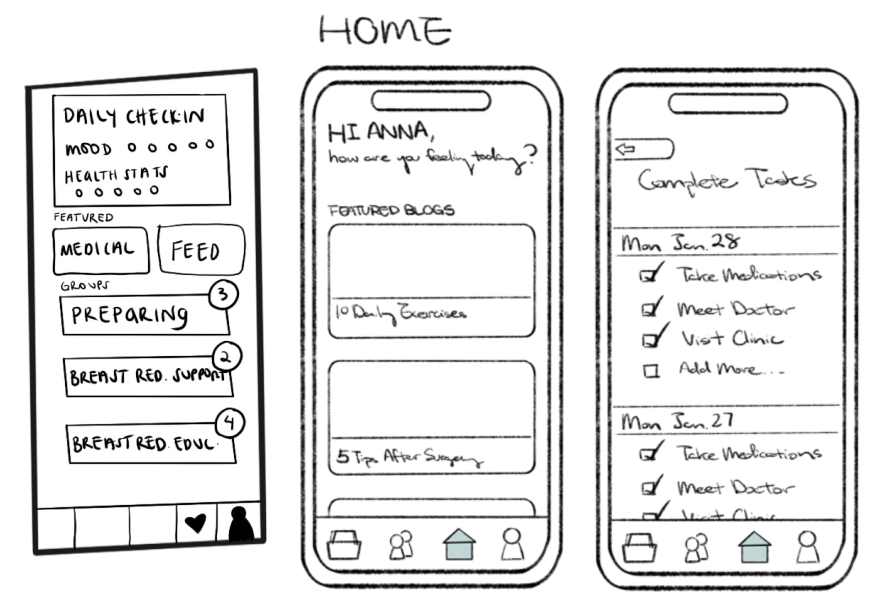 HOME
DAILY CHECK-IN
MOOD
HEALTH STATS
FEATURED
MEDICAL
FEED
GROUPS
3
PREPARING
2
BREAST RED. SUPPORT
4
BREAST RED. EDUC.
HI ANNA,
how are you feeling today?
FEATURED BLOGS
10 Daily Exercises
5 Tips After Surgery
Complete Tasks
Mon Jan. 28
Take Medications
Meet Doctor
Visit Clinic
Add More...
Mon Jan. 27
Take Medications
Meet Doctor
Visit Clinic